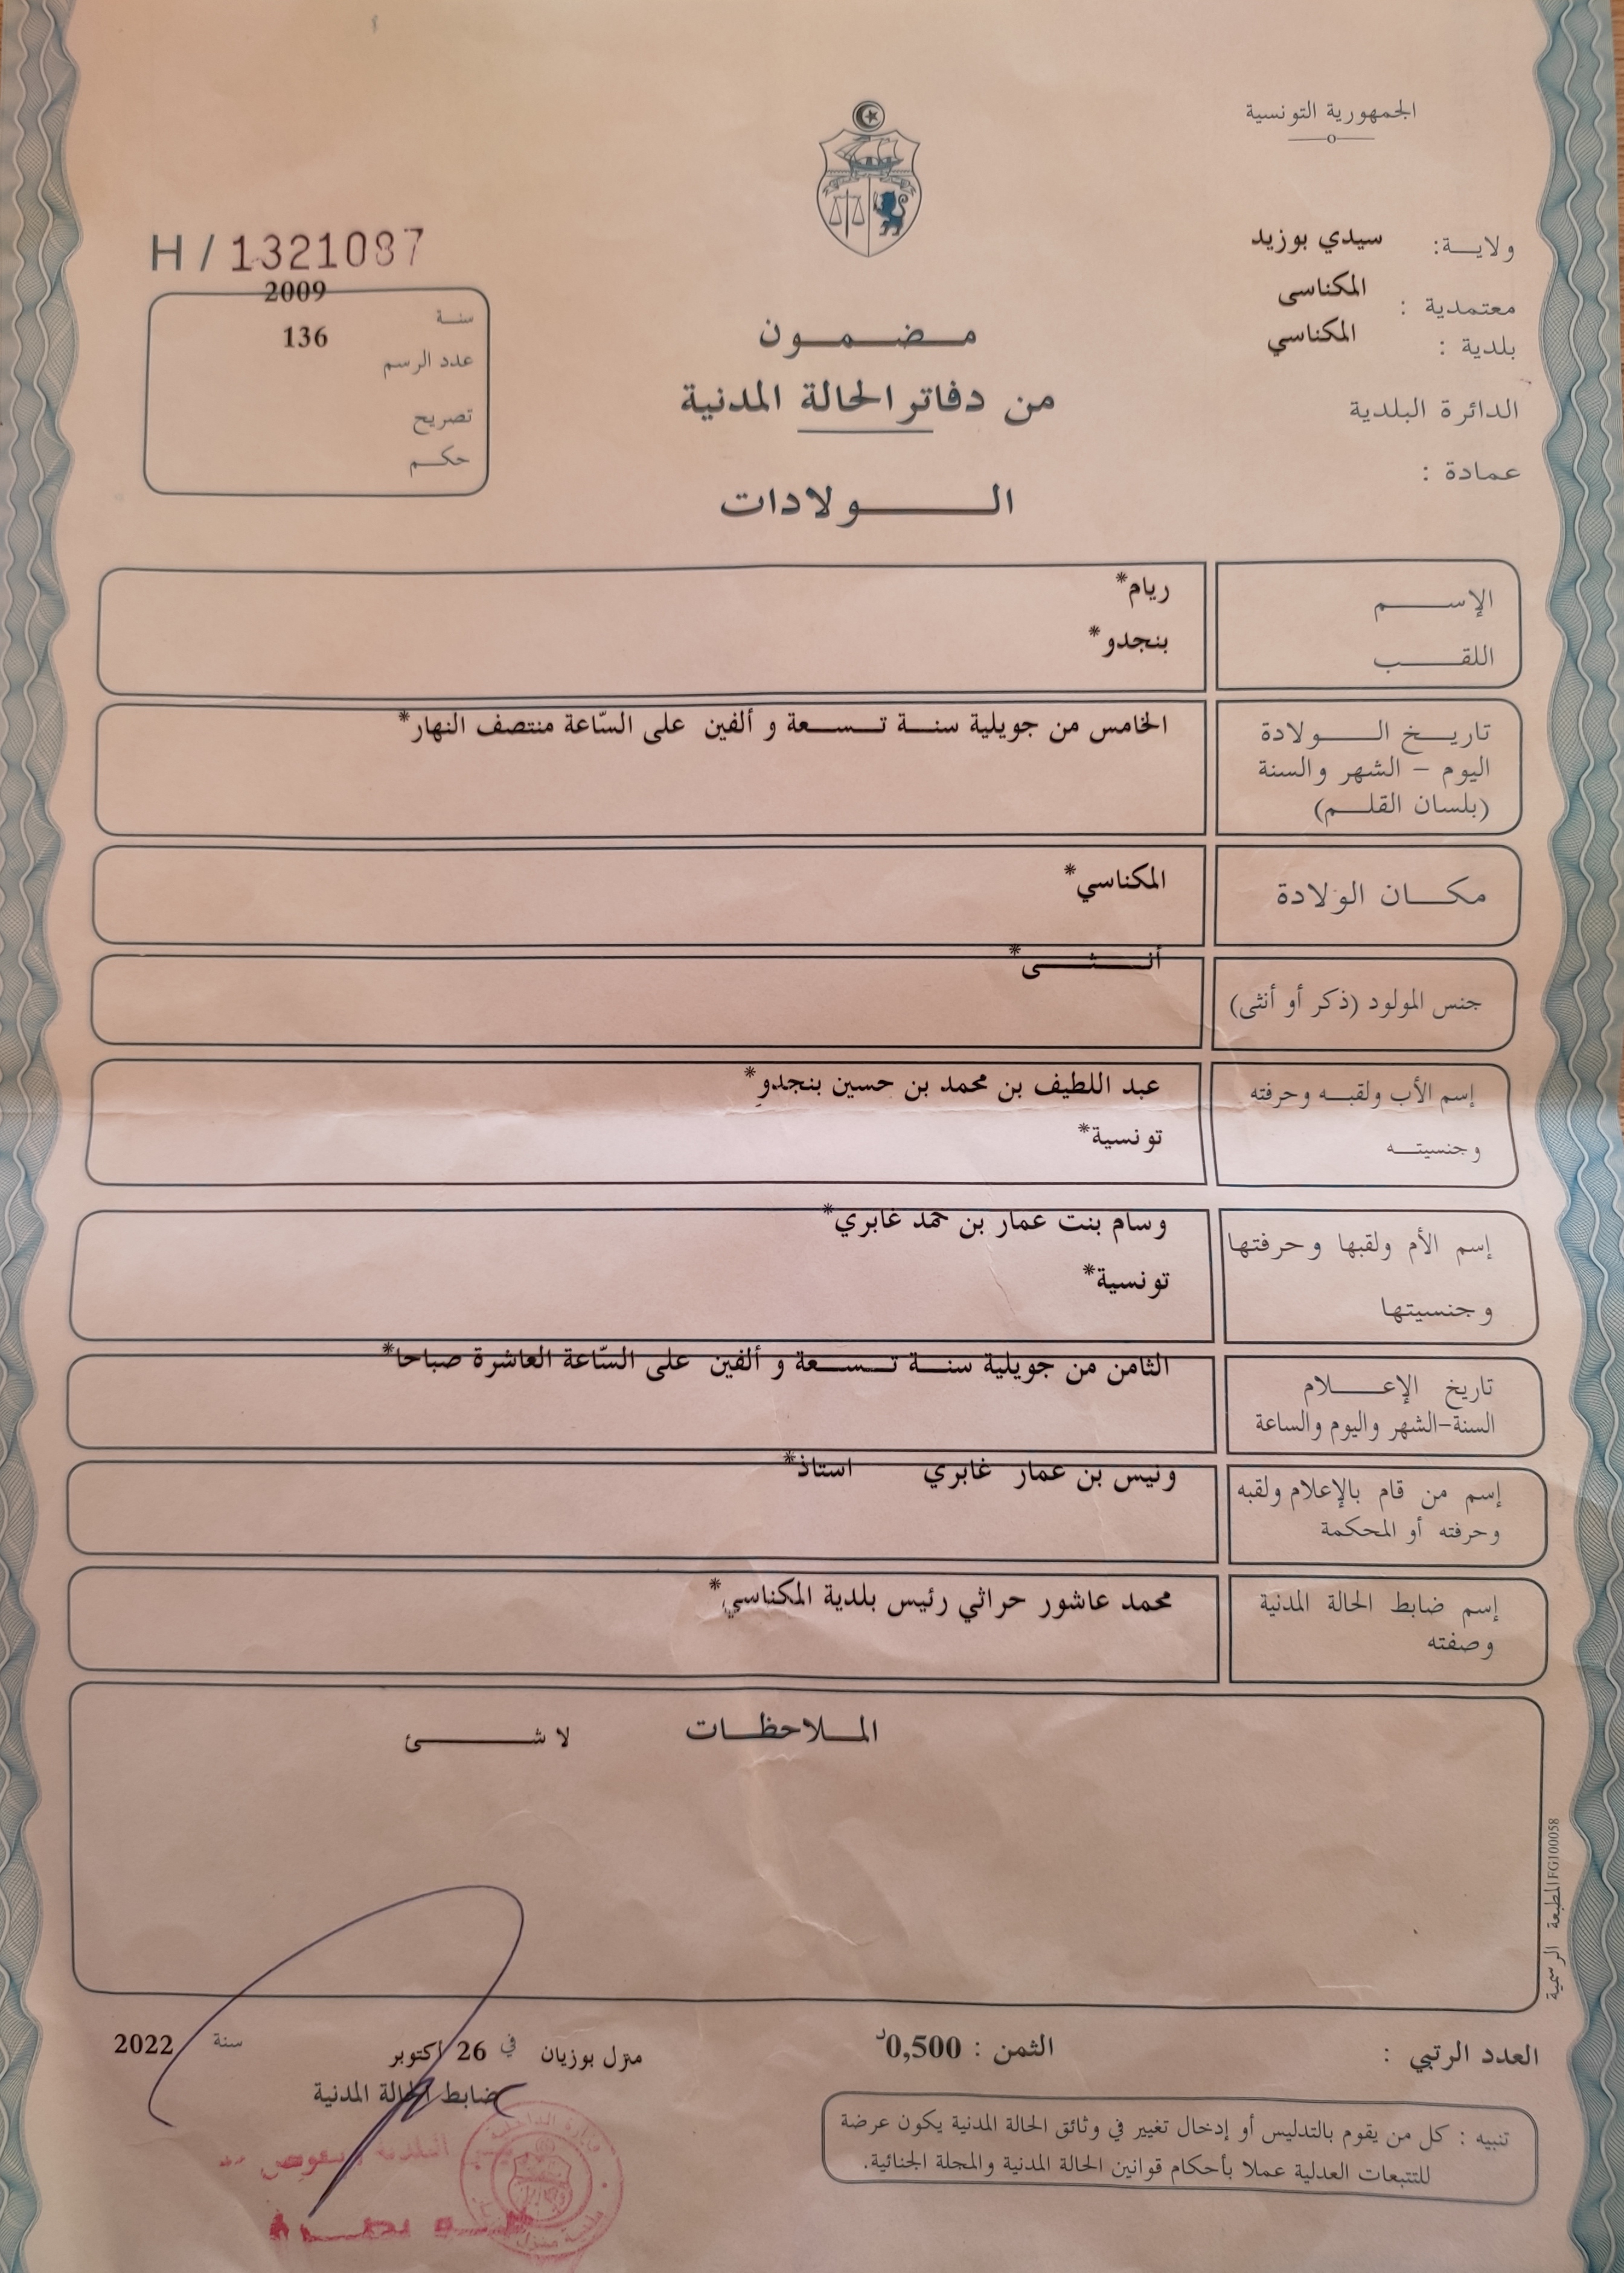 الجمهورية التونسية
ولايـــة: سيدي بوزيد
معتمدية : المكناسى
بلدية : المكناسي
الدائرة البلدية
عمادة :
H / 1321087
سنـة 2009
عدد الرسم 136
تصريح
حكــم
مـضـمـون
من دفاتر الحالة المدنية
الـولادات
الإســـم ريام*
اللقـــب بنجدو*
تاريـــخ الـــولادة الخامس من جويلية سنـــة تـــسعة و ألفين على السّاعة منتصف النهار*
اليوم – الشهر والسنة
(بلسان القلـــم)
مكـــان الولادة المكناسي*
جنس المولود (ذكر أو أنثى) أنـــثـــى*
إسم الأب ولقبـــه وحرفته عبد اللطيف بن محمد بن حسين بنجدو*
وجنسيتـــه تونسية*
إسم الأم ولقبها وحرفتها وسام بنت عمار بن حمد غابري*
وجنسيتها تونسية*
تاريخ الإعـــلام الثامن من جويلية سنـــة تـــسعة و ألفين على السّاعة العاشرة صباحا*
السنة–الشهر واليوم والساعة
إسم من قام بالإعلام ولقبه ونيس بن عمار غابري استاذ*
وحرفته أو المحكمة
إسم ضابط الحالة المدنية محمد عاشور حراثي رئيس بلدية المكناسي*
وصفته
المـــلاحظـــات لا شـــئ
المطبعة الرسمية FG100058
العدد الرتبي :
الثمن : 0,500د
منزل بوزيان في 26 اكتوبر سنة 2022
ضابط الحالة المدنية
تنبيه : كل من يقوم بالتدليس أو إدخال تغيير في وثائق الحالة المدنية يكون عرضة
للتتبعات العدلية عملا بأحكام قوانين الحالة المدنية والمجلة الجنائية.